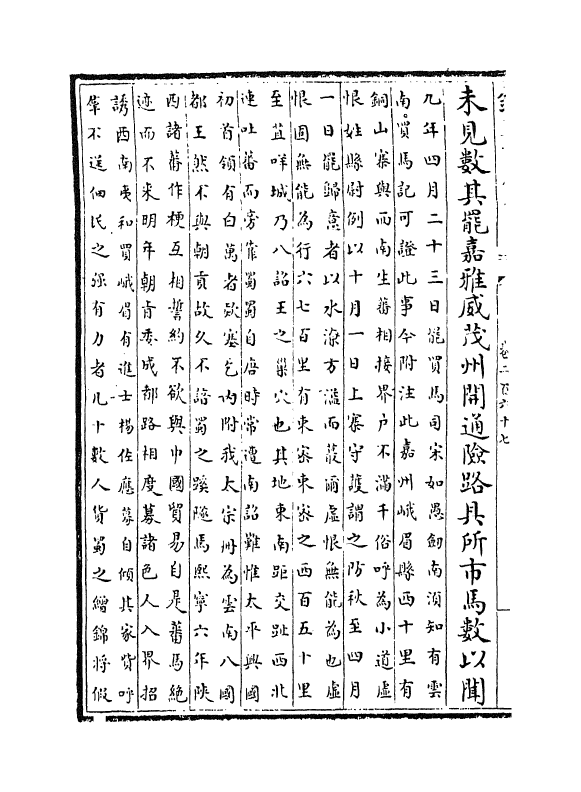 未見數其罷嘉雅威茂州開通險路具所市馬數以聞
九年四月二十三日罷買馬司宋如愚劒南須知有雲
南買馬記可證此事今附注此嘉州峨眉縣西十里有
銅山寨與西南生蕃相接界户不滿千俗呼為小道虛
恨姓縣尉例以十月一日上寨守護謂之防秋至四月
一日罷歸意者以水潦方溢而蕞爾虛恨無能為也虛
恨固無能為行六七百里有束密束密之西百五十里
至苴咩城乃八詔王之巢穴也其地東南距交趾西北
連吐蕃而旁靠蜀蜀自唐時常遭南詔難惟太平興國
初首領有白萬者欵塞乞内附我太宗册為雲南八國
都王然不與朝貢故久不諳蜀之蹊隧焉熙寧六年陜
西諸蕃作梗互相誓約不欲與中國貿易自是蕃馬絶
迹而不來明年朝旨委成都路相度募諸色人入界招
誘西南夷和買峨眉有進士楊佐應募自傾其家貲呼
羣不逞佃民之強有力者凡十數人貨蜀之繒錦將假
卷二百六十七